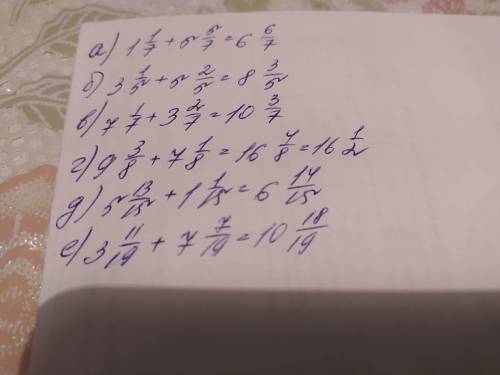 а) 1 1/7 + 5 5/7 = 6 6/7
б) 3 1/5 + 5 2/5 = 8 3/5
в) 7 1/7 + 3 2/7 = 10 3/7
г) 9 3/8 + 7 1/8 = 16 4/8 = 16 1/2
д) 5 13/15 + 1 1/15 = 6 14/15
е) 3 11/19 + 7 7/19 = 10 18/19